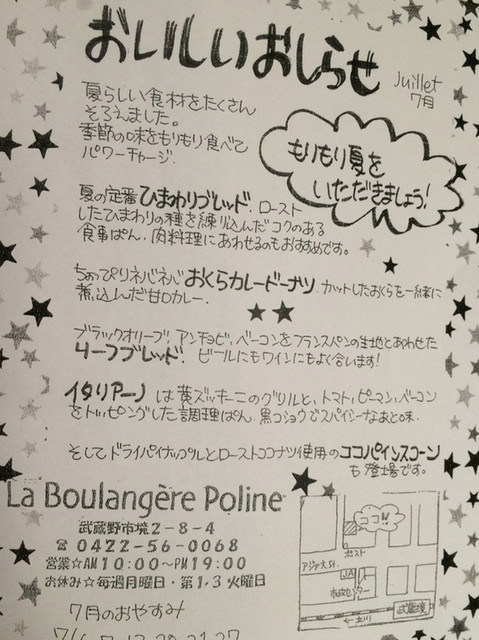 おいしいおしらせ
Juillet
7月
夏らしい食材をたくさん
そろえました。
季節の味をもりもり食べて
パワーチャージ.
もりもり夏を
いただきましょう!
夏の定番ひまわりブレッド.ロースト
したひまわりの種を練り込んだコクのある
食事ぱん.肉料理にあわせるのもおすすめです。
ちょっぴりネバネバおくらカレードーナツ.カットしたおくらを一緒に
煮込んだ甘口カレー.
ブラックオリーブ,アンチョビ,ベーコンをフランスパンの生地とあわせた
リーフブレッド.ビールにもワインにもよく合います!
イタリアーノは黄ズッキーニのグリルと,トマト,ピーマン,ベーコン
をトッピングした調理ぱん.黒コショウでスパイシーなあと味.
そしてドライパイナップルとローストココナツ使用のココパインスコーン
も登場です。
La Boulangère Poline
武蔵野市境2-8-4
☎0422-56-0068
営業☆AM10:00~PM19:00
お休み☆毎週月曜日・第1,3火曜日
7月のおやすみ
ココ!!
ポスト
アジア大学.
JA
市政センター
武蔵境